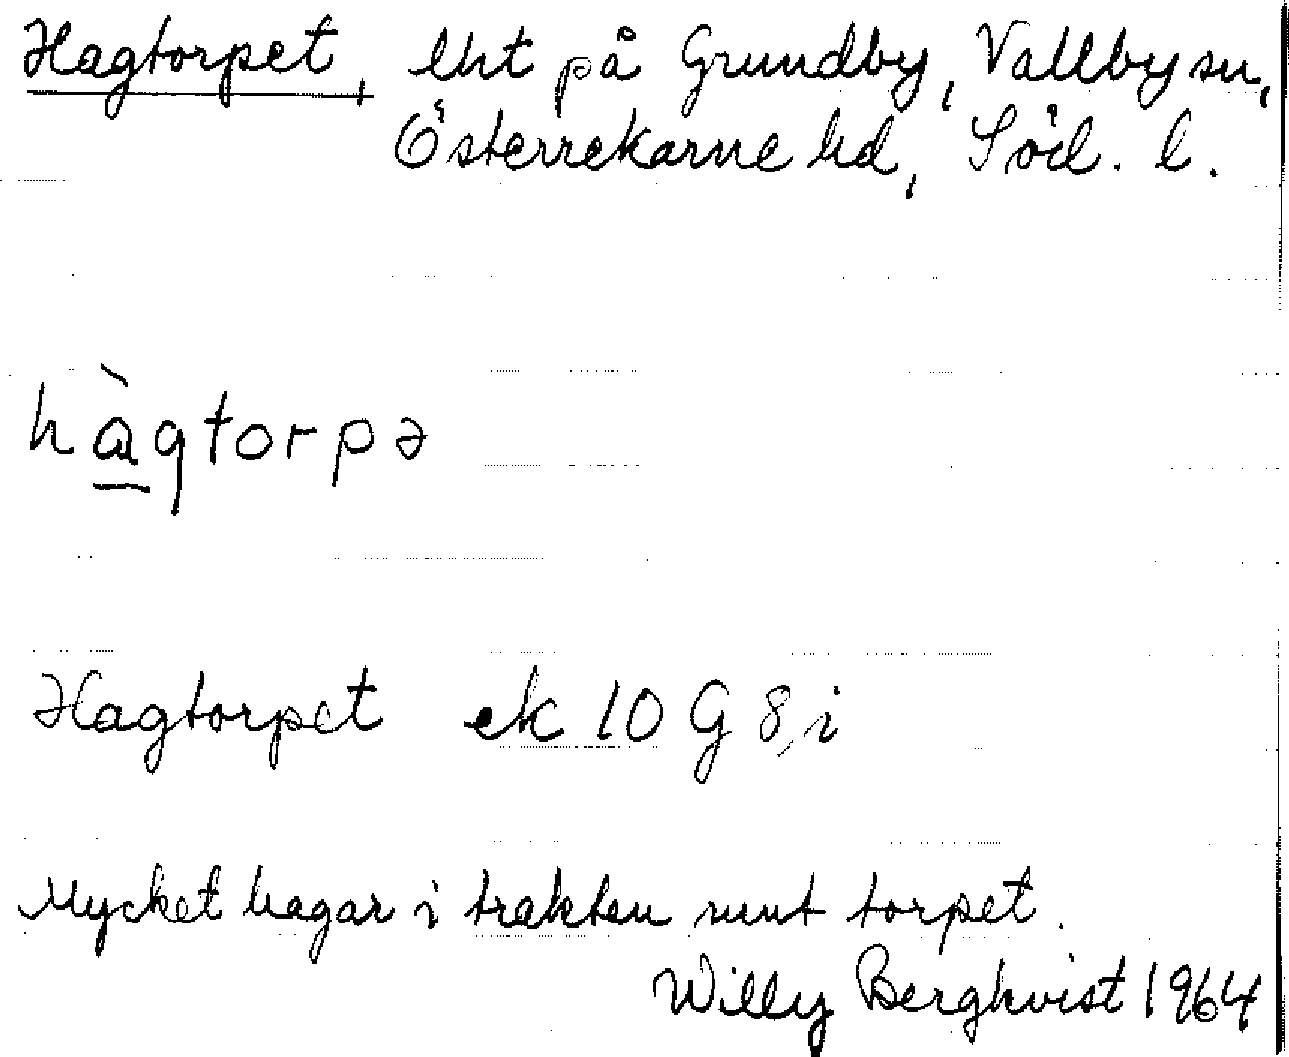 Hagtorpet, lht på Grundby, Vallby sn,
Österrekarne hd, Söd. l.
hàgtorpə
Hagtorpet ek 10 G 8, i
Mycket hagar i trakten runt torpet.
Willy Bergkvist 1964